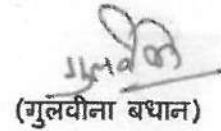 (गुलवीना बधान)